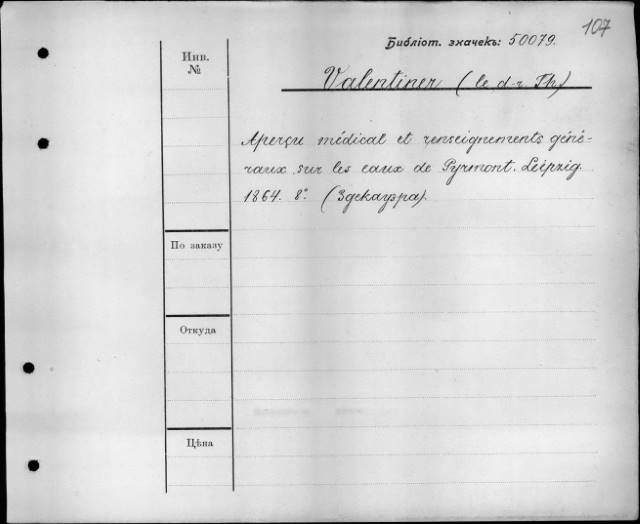 107
Библіот. значекъ: 50079.
Инв.
№
Valentiner (le d-r Th.)
Aperçu médical et renseignements géné-
raux sur les eaux de Pyrmont. Leipzig.
1864. 8°. (Здекауэра).
По заказу
Откуда
Цѣна